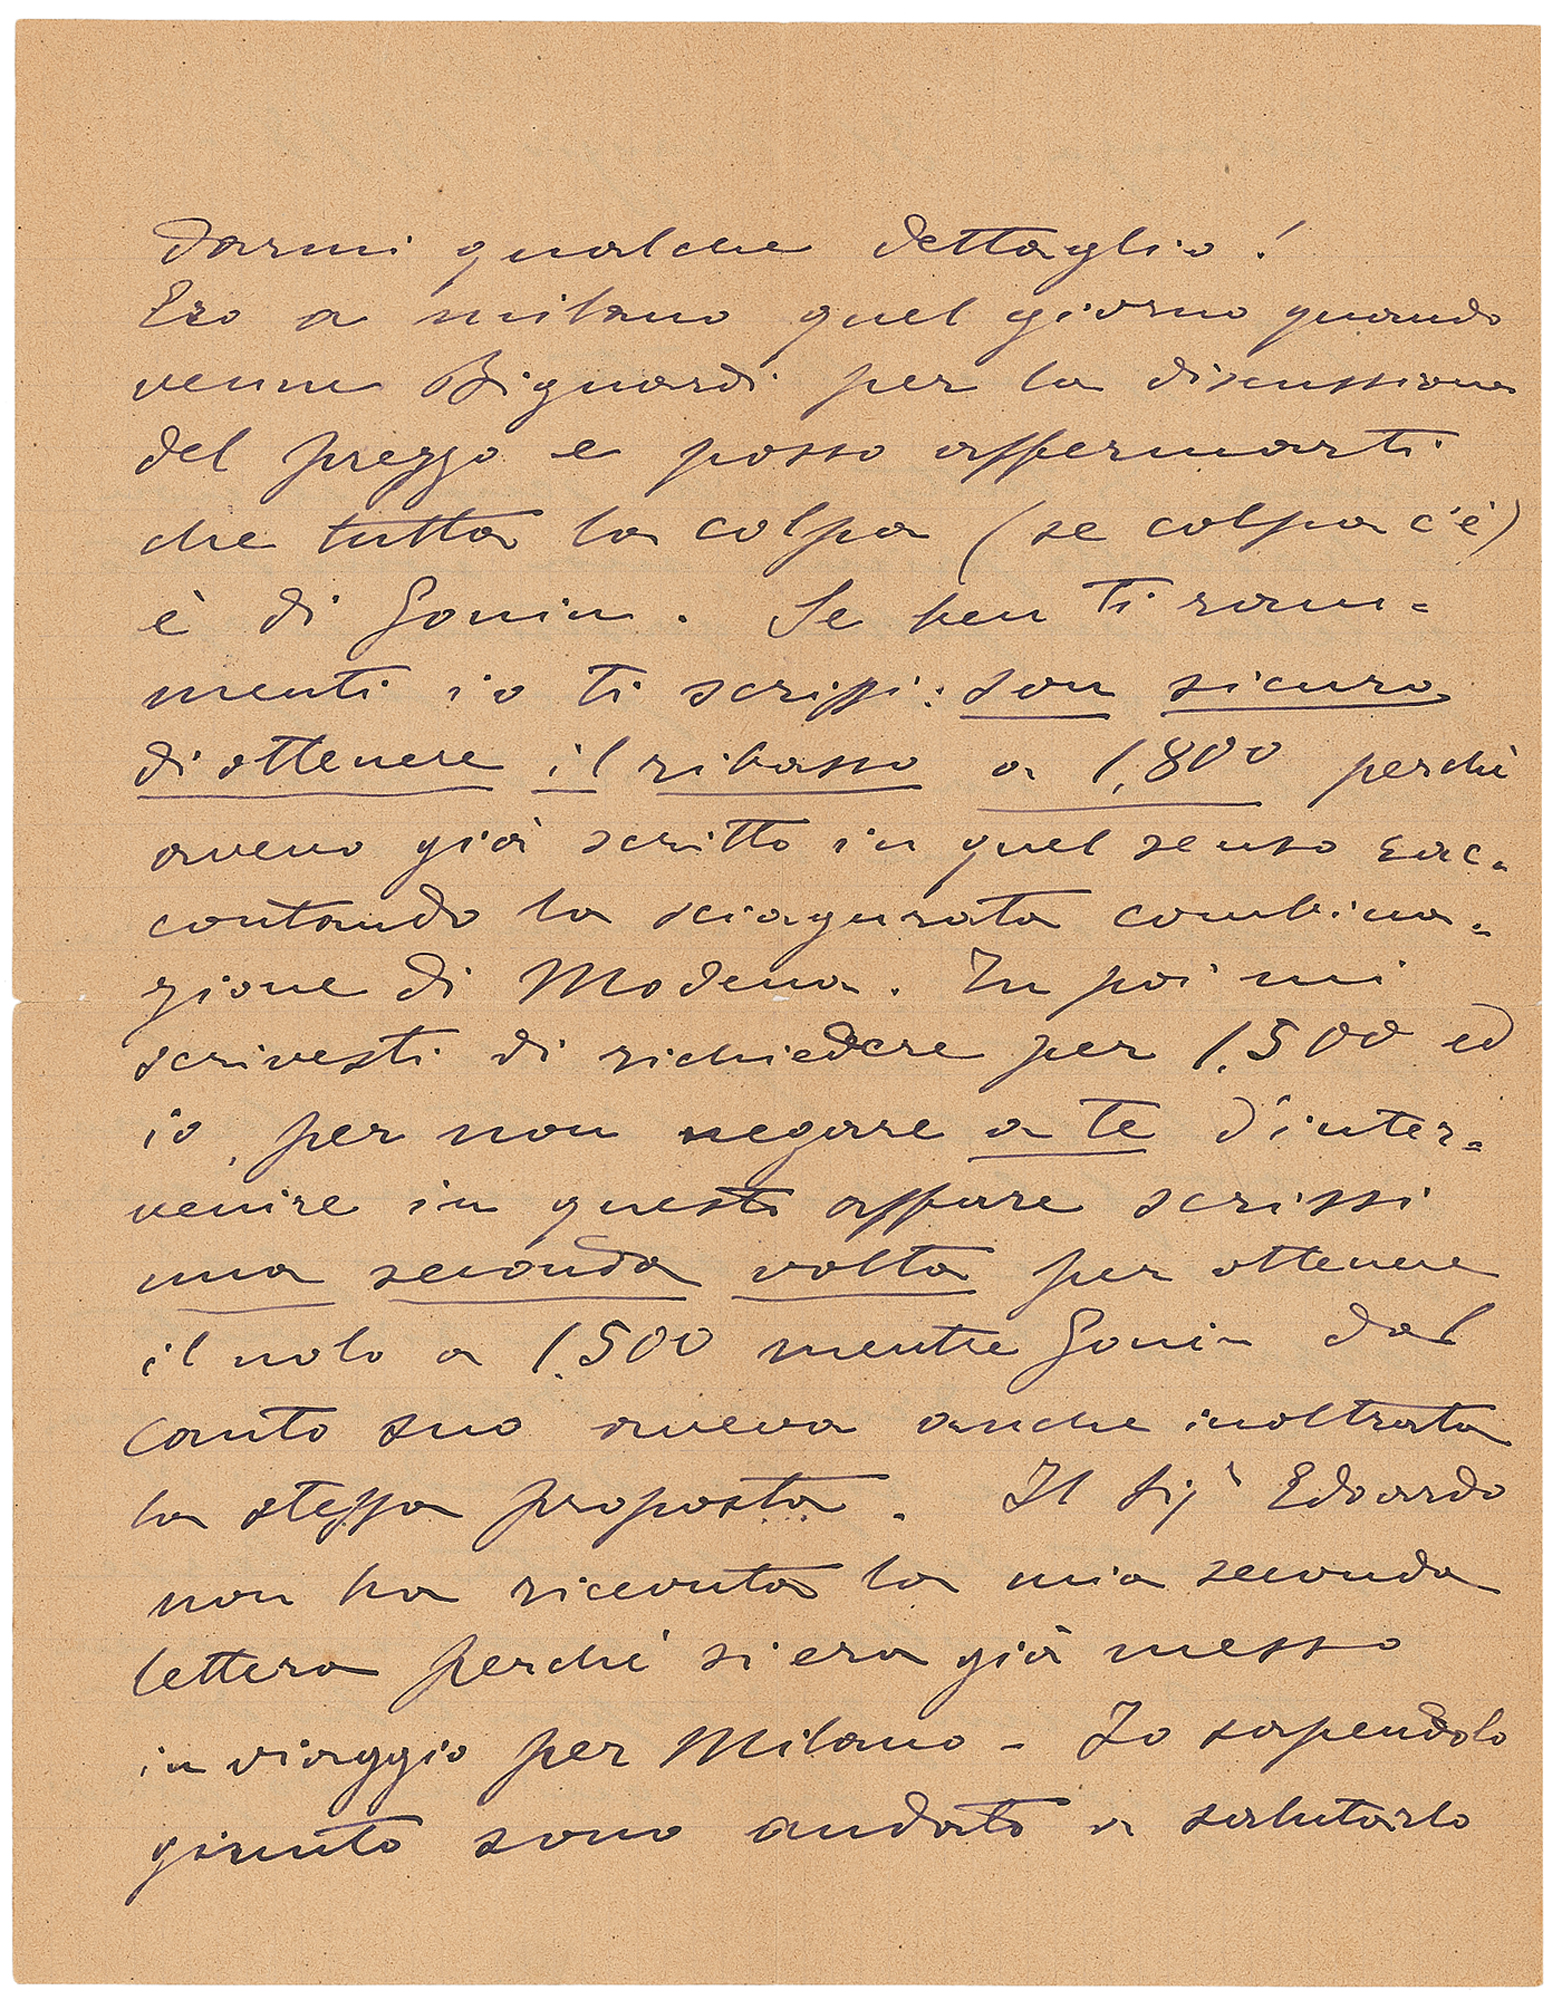 darmi qualche dettaglio!
Ero a milano quel giorno quando
venne Bignardi per la discussione
del prezzo e posso affermarti
che tutta la colpa (se colpa c'è)
è di Gonin. Se ben ti ram=
menti io ti scrissi: son sicuro
di ottenere il ribasso a 1,800 perchè
avevo già scritto in quel senso rac=
contando la sciagurata combina=
zione di Modena. Tu poi mi
scrivesti di richiedere per 1.500 ed
io, per non negare a te d'inter=
venire in questi affare scrissi
una seconda volta per ottenere
il nolo a 1.500 mentre Gonin dal
canto suo aveva anche inoltrata
la stessa proposta. Il Sigr Edoardo
non ha ricevuta la mia seconda
lettera perchè si era già messo
in viaggio per Milano - Io sapendolo
giunto sono andato a salutarlo